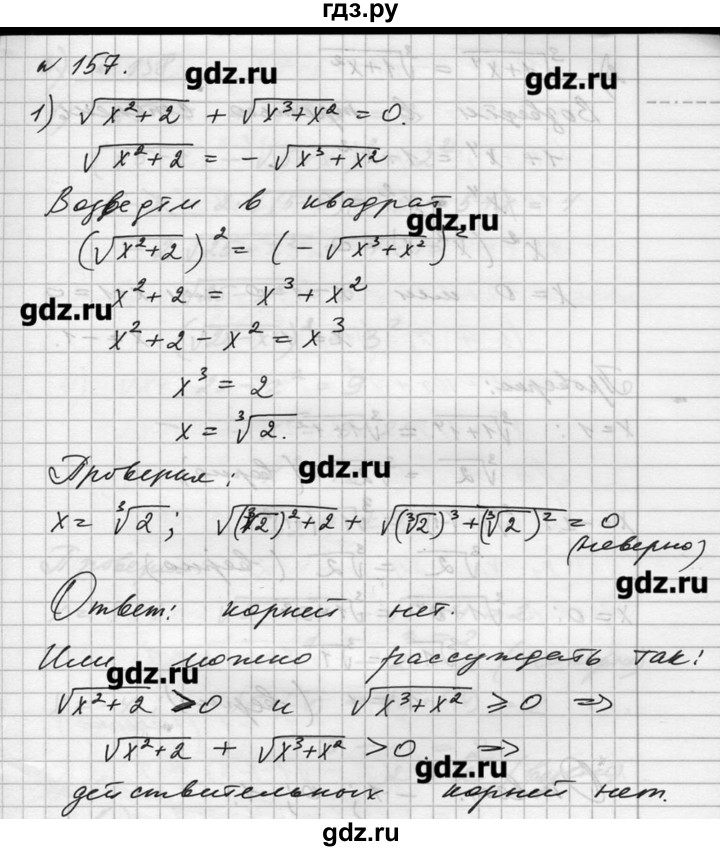 гдз.ру
№ 157.
gdz.ru
gdz.ru
1) √(x²+2) + √(x³+x²) = 0.
√(x²+2) = - √(x³+x²)
Возведём в квадрат
gdz.ru
(√(x²+2))² = (-√(x³+x²))²
gdz.ru
x²+2 = x³+x²
x²+2-x² = x³
x³ = 2
x = ∛2.
Проверим:
gdz.ru
x = ∛2; √((∛2)²+2) + √((∛2)³+(∛2)²) = 0
(неверно)
gdz.ru
Ответ: корней нет.
Или можно рассуждать так:
gdz.ru
√(x²+2) > 0 и √(x³+x²) ⩾ 0 =>
√(x²+2) + √(x³+x²) > 0 =>
gdz.ru
действительных корней нет.
gdz.ru